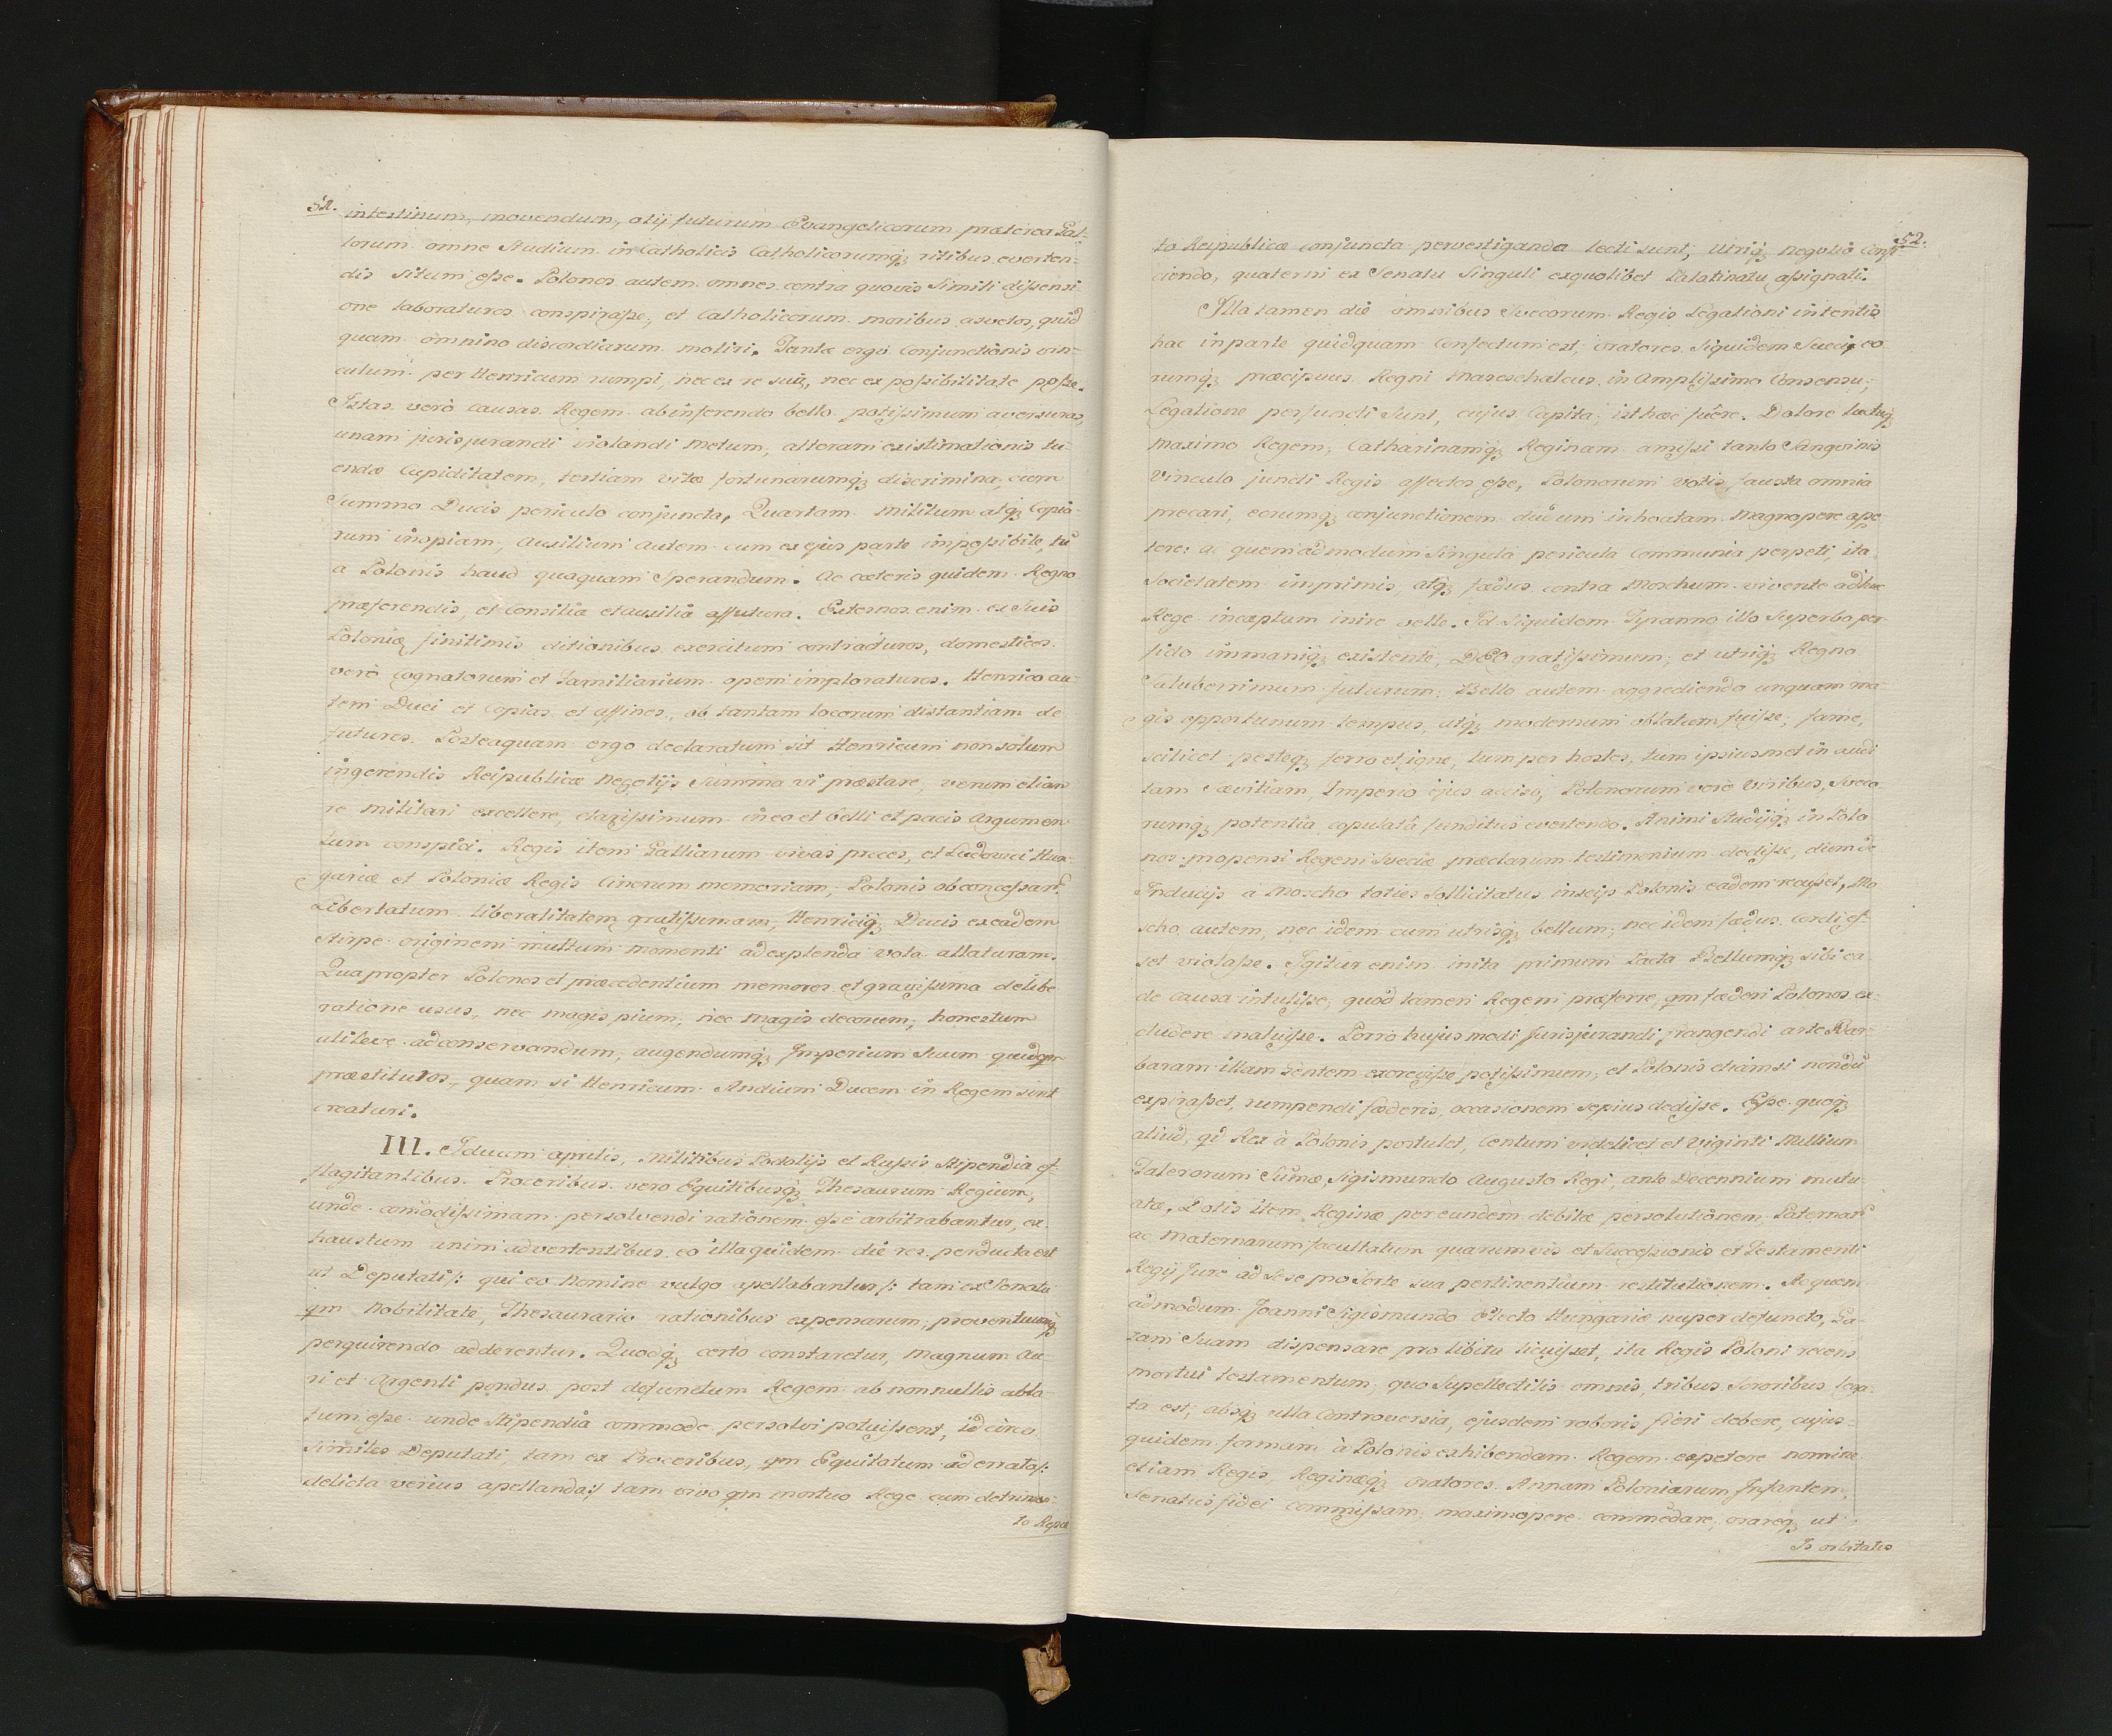 52.
intestinum, movendum, otij futurum Evangelicorum præterea Gal-
lorum omne Studium in Catholicis Catholicorumq́ꝫ ritibus everten-
dis situm eſse. Polonos autem omnes contra quovis Simili diſsensi
one laboraturos conspiraſse, et Catholicorum moribus asvetos, quid
quam omnino discordiarum moliri. Tantæ ergo Conjunctionis vin-
culum per Henricum rumpi, nec ex re suâ, nec ex poſsibilitate poſse.
Istas verò causas Regem ab inferendo bello potiſsimum aversuras,
unam jurisjurandi violandi metum, alteram existimationis tu-
endæ Cupiditatem, tertiam vitæ fortunarumq́ꝫ discrimina, cum
Summo Ducis periculo conjuncta, Quartam militum atq́ꝫ Copia-
rum inopiam, Auxilium autem cum ex ejus parte impoſsibile, tū
a Polonis haud quaquam Sperandum. Ac cæteris quidem Regno
præferendis, et Consilia et auxilia affutura. Externos enim ex Suis
Poloniæ finitimis ditionibus exercitum contracturos, domesticos
verò Cognatorum et Familiarium opem imploraturos. Henrico au-
tem Duci et Copias et affines, ob tantam locorum distantiam de
futuros. Posteaquam ergo declaratum sit Henricum non solum
ingerendis Reipublicæ negotijs Summa vi præstare, verum etiam
re militari excellere, clariſsimum in eo et belli et pacis Argumen
tum conspici. Regis item Galliarum vivas preces, et Ludovici Hun-
gariæ et Poloniæ Regis Cinerum memoriam, Polonis ob conceſsarū
Libertatum liberalitatem gratiſsimam, Henriciq́ꝫ Ducis ex eadem
Stirpe originem multum momenti ad explenda vota allaturam.
Quapropter Polonos et præcedentium memores et graviſsima delibe
ratione usus, nec magis pium, nec magis decorum, honestum
utileve ad conservandum, augendumq́ꝫ Imperium Suum quidqm
præstituros, quam si Henricum Andium Ducem in Regem sint
creaturi.
III. Iduum aprilis, militibus Podolijs et Ruſsis Stipendia ef-
flagitantibus. Proceribus vero Equitibusq́ꝫ Thesaurum Regium,
unde comodiſsimam persolvendi rationem eſse arbitrabantur, ex-
haustum animadvertentibus eo illa quidem die res perducta est
ut Deputati/: qui eo Nomine vulgo apellabantur/: tam ex Senatu
qm Nobilitate, Thesaurario rationibus expensarum, proventuumq́ꝫ
perquirendo adderentur. Quodq́ꝫ certò constaretur, magnum Au-
ri et Argenti pondus post defunctum Regem ab nonnullis abla-
tum eſse unde Stipendia commode persolvi potuiſsent, idcirco
Similes Deputati, tam ex Proceribus, qm Equitatum ad errata/:
delicta verius apellanda:/ tam vivo qm mortuo Rege cum detrimen-
to Repcæ
52.
to Reipublicæ conjuncta pervestiganda lecti sunt; Utriq́ꝫ negotio Confi-
ciendo, quaterni ex Senatu Singuli exquolibet Palatinatu aſsignati.
Illa tamen die omnibus Svecorum Regis Legationi intentis
hac in parte quidquam Confectum est, oratores Siquidem Sueci, eo
rumq́ꝫ præcipuus Regni Mareschalcus in Ampliſsimo Consensu,
Legatione perfuncti Sunt, cujus Capita, isthæc fuêre. Dolore luctuq́ꝫ
maximo Regem, Catharinamq́ꝫ Reginam amiſsi tanto Sangvinis
Vinculo juncti Regis affectos eſse, Polonorum votis fausta omnia
precari, eorumq́ꝫ conjunctionem diu um inhoatam magnopere ape
tere: ac quemadmodum Singula pericula communia perpeti, ita
Societatem imprimis, atq́ꝫ fædus contra Moschum vivente adhuc
Rege inceptum inire velle. Id Siquidem Tyranno illo Superbo per
fido immaniq́ꝫ existente, DEO gratiſsimum, et utriq́ꝫ Regno
Saluberrimum futurum. Bello autem aggrediendo unquam ma-
gis opportunum tempus, atq́ꝫ modernum oblatum fuiſse, fame,
scilicet pesteq́ꝫ ferro et igne, tum per hostes, tum ipsiusmet in audi
tam Sævitiam, Imperio ejus acciso, Polonorum verò Viribus, Sveco
rumq́ꝫ potentia copulatâ funditus evertendo. Animi Studijq́ꝫ in Polo
nos propensi Regem Sveciæ præclarum testimonium dediſse, dum de
Inducijs à Moscho toties Sollicitatus inscijs Polonis eadem recuſset, Mo
scho autem, nec idem cum utrisq́ꝫ bellum, nec idem fædus Cordi es-
set violaſse. Igitur enim inita primum Pacta Bellumq́ꝫ sibi ea
de causa intuliſse, quod tamen Regem præferre, qm fæderi Polonos ex-
cludere maluiſse. Porrò hujusmodi Jurisjurandi frangendi arte Bar-
baram illam Gentem excreviſse potiſsimum, et Polonis etiamsi nondū
expiraſset, rumpendi fæderis occasionem sepius dediſse. Eſse quoq́ꝫ
aliud, qd Rex à Polonis postulet, Centum videlicet et Viginti Millium
Talerorum Sumæ, Sigismundo Augusto Regi, ante Decennium mutu-
atæ, Dotis item Reginæ per eundem debitæ persolutionem, Paternarū
ac Maternarum facultatum quarumvis et Succeſsionis et Testamenti
Regij Jure ad Sese pro Sorte sua pertinentium restitutionem. Ac quem
admodum Joanni Sigismundo Electo Hungariæ nuper defuncto, Ga-
zam Suam dispensare pro libitu licuiſset, ita Regis Poloni recens
mortui testamentum, quo Supellectilis omnis, tribus Sororibus lega-
ta est, absq́ꝫ ulla Controversia, ejusdem roboris fieri debere, cujus-
quidem formam à Polonis exhibendam. Regem expetere nomine
etiam Regis, Reginæq́ꝫ oratores. Annam Poloniarum Infantem,
Senatus fidei Commiſsam maximopere commēdare, orareq́ꝫ ut
Is orbitatis